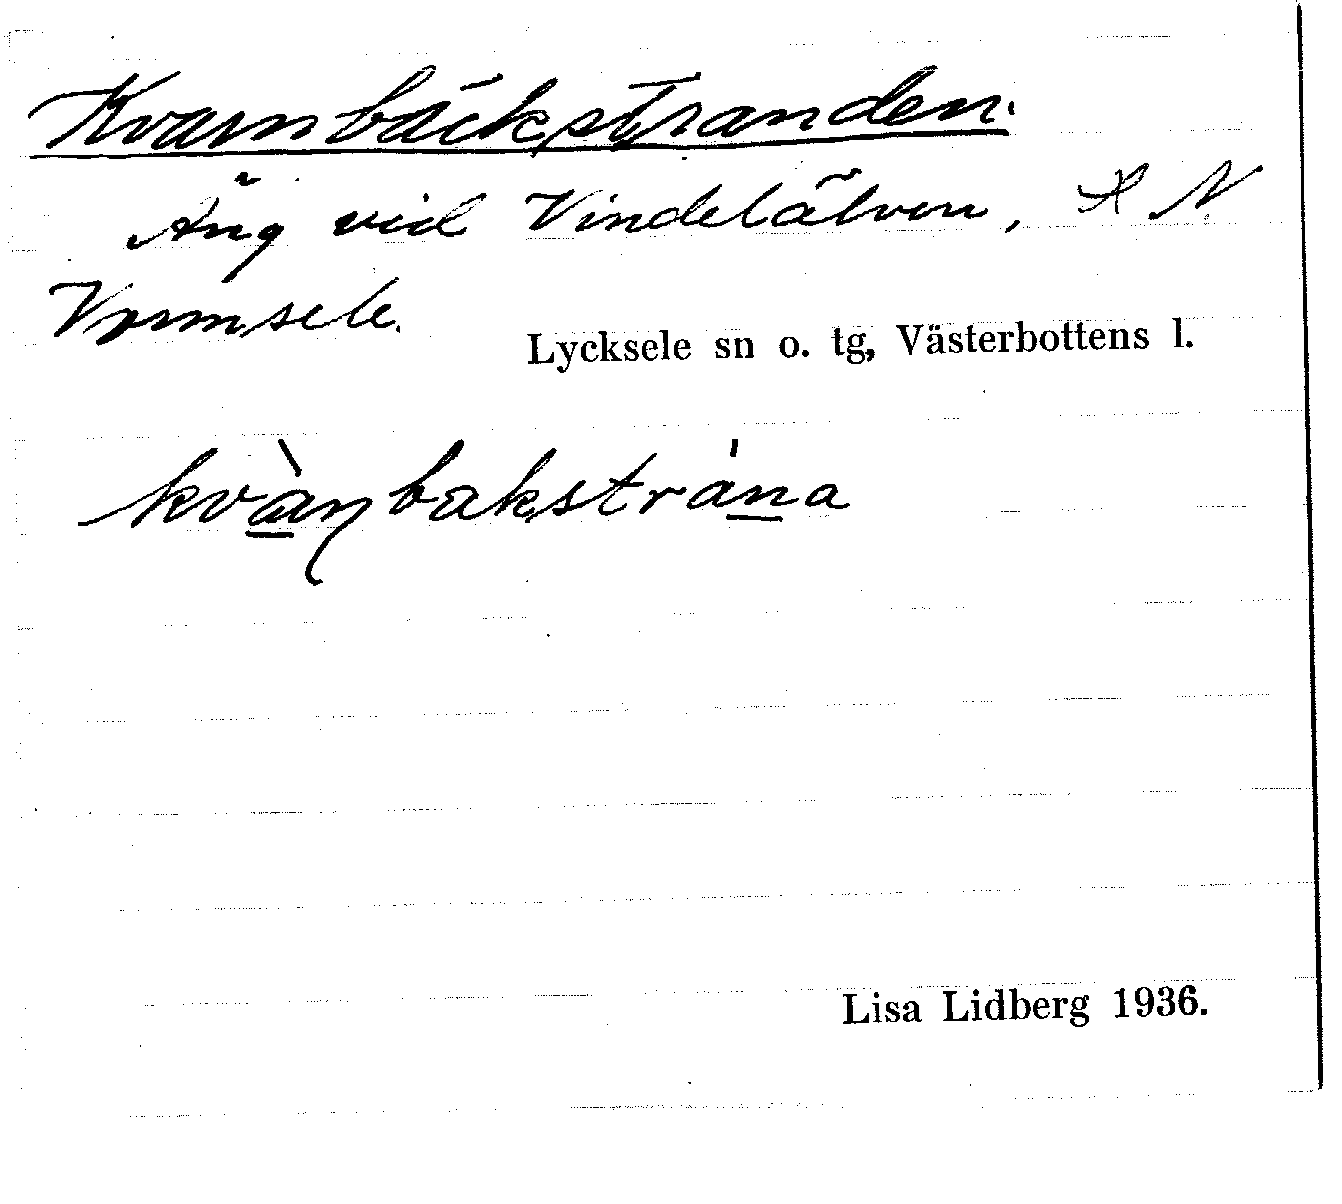 Kvarnbäckstranden.
Äng vid Vindelälven, N
Vormsele.
Lycksele sn o. tg, Västerbottens l.
kvànbakstrána
Lisa Lidberg 1936.